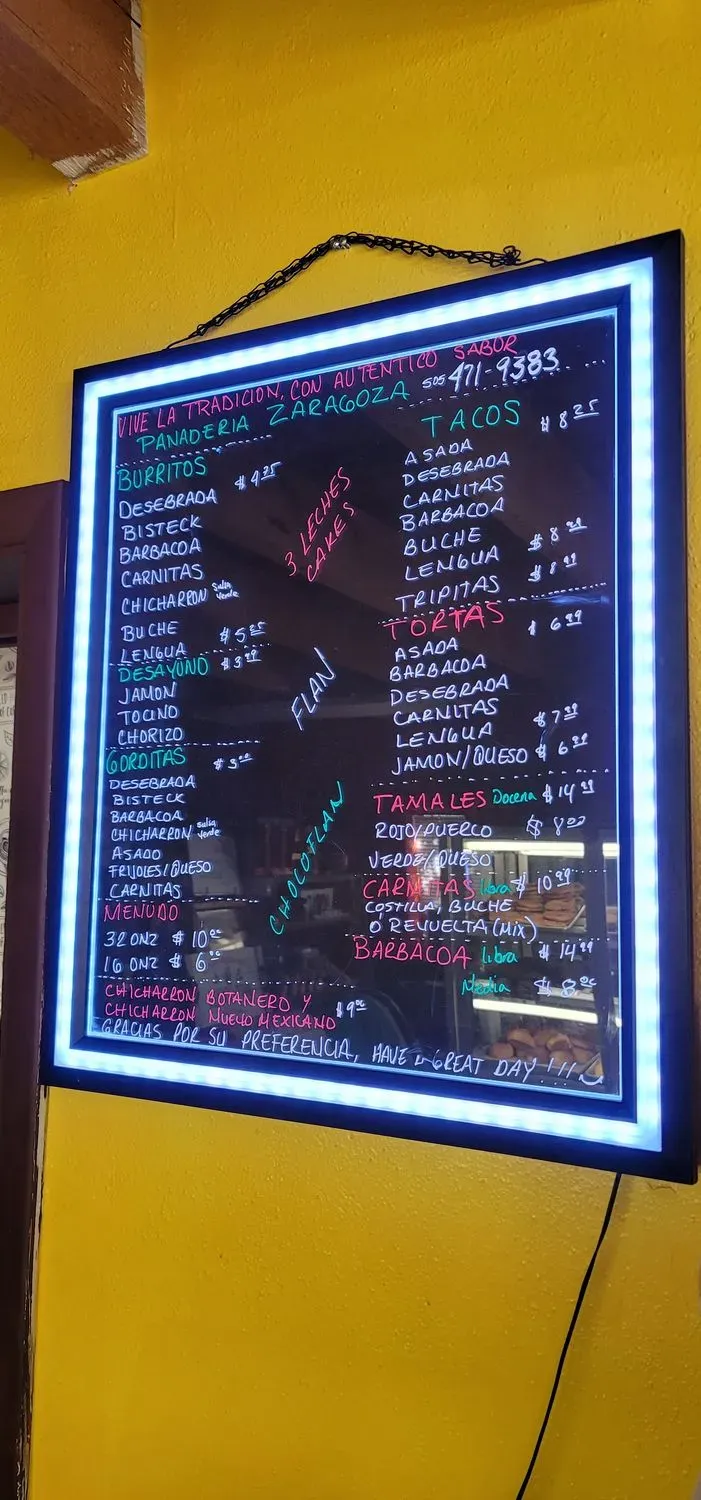 VIVE LA TRADICION, CON AUTENTICO SABOR
PANADERIA ZARAGOZA 505 471-9383
BURRITOS
DESEBRADA $4.25
BISTECK
BARBACOA
CARNITAS
CHICHARRON Salsa Verde
BUCHE
LENGUA $5.25
DESAYUNO $3.99
JAMON
TOCINO
CHORIZO
GORDITAS $3.00
DESEBRADA
BISTECK
BARBACOA
CHICHARRON Salsa Verde
ASADO
FRIJOLES/QUESO
CARNITAS
MENUDO
32 ONZ $10.00
16 ONZ $6.00
CHICHARRON BOTANERO Y
CHICHARRON NUEVO MEXICANO $9.00
3 LECHES
CAKES
FLAN
CHOCOFLAN
TACOS $8.25
ASADA
DESEBRADA
CARNITAS
BARBACOA
BUCHE
LENGUA $8.99
TRIPITAS $8.99
TORTAS $6.99
ASADA
BARBACOA
DESEBRADA
CARNITAS
LENGUA $7.99
JAMON/QUESO $6.99
TAMALES Docena $14.99
ROJO/PUERCO $8.00
VERDE/QUESO
CARNITAS Libra $10.99
COSTILLA, BUCHE
O REVUELTA (MIX)
BARBACOA Libra $14.99
Media $8.00
GRACIAS POR SU PREFERENCIA, HAVE a GREAT DAY!!!